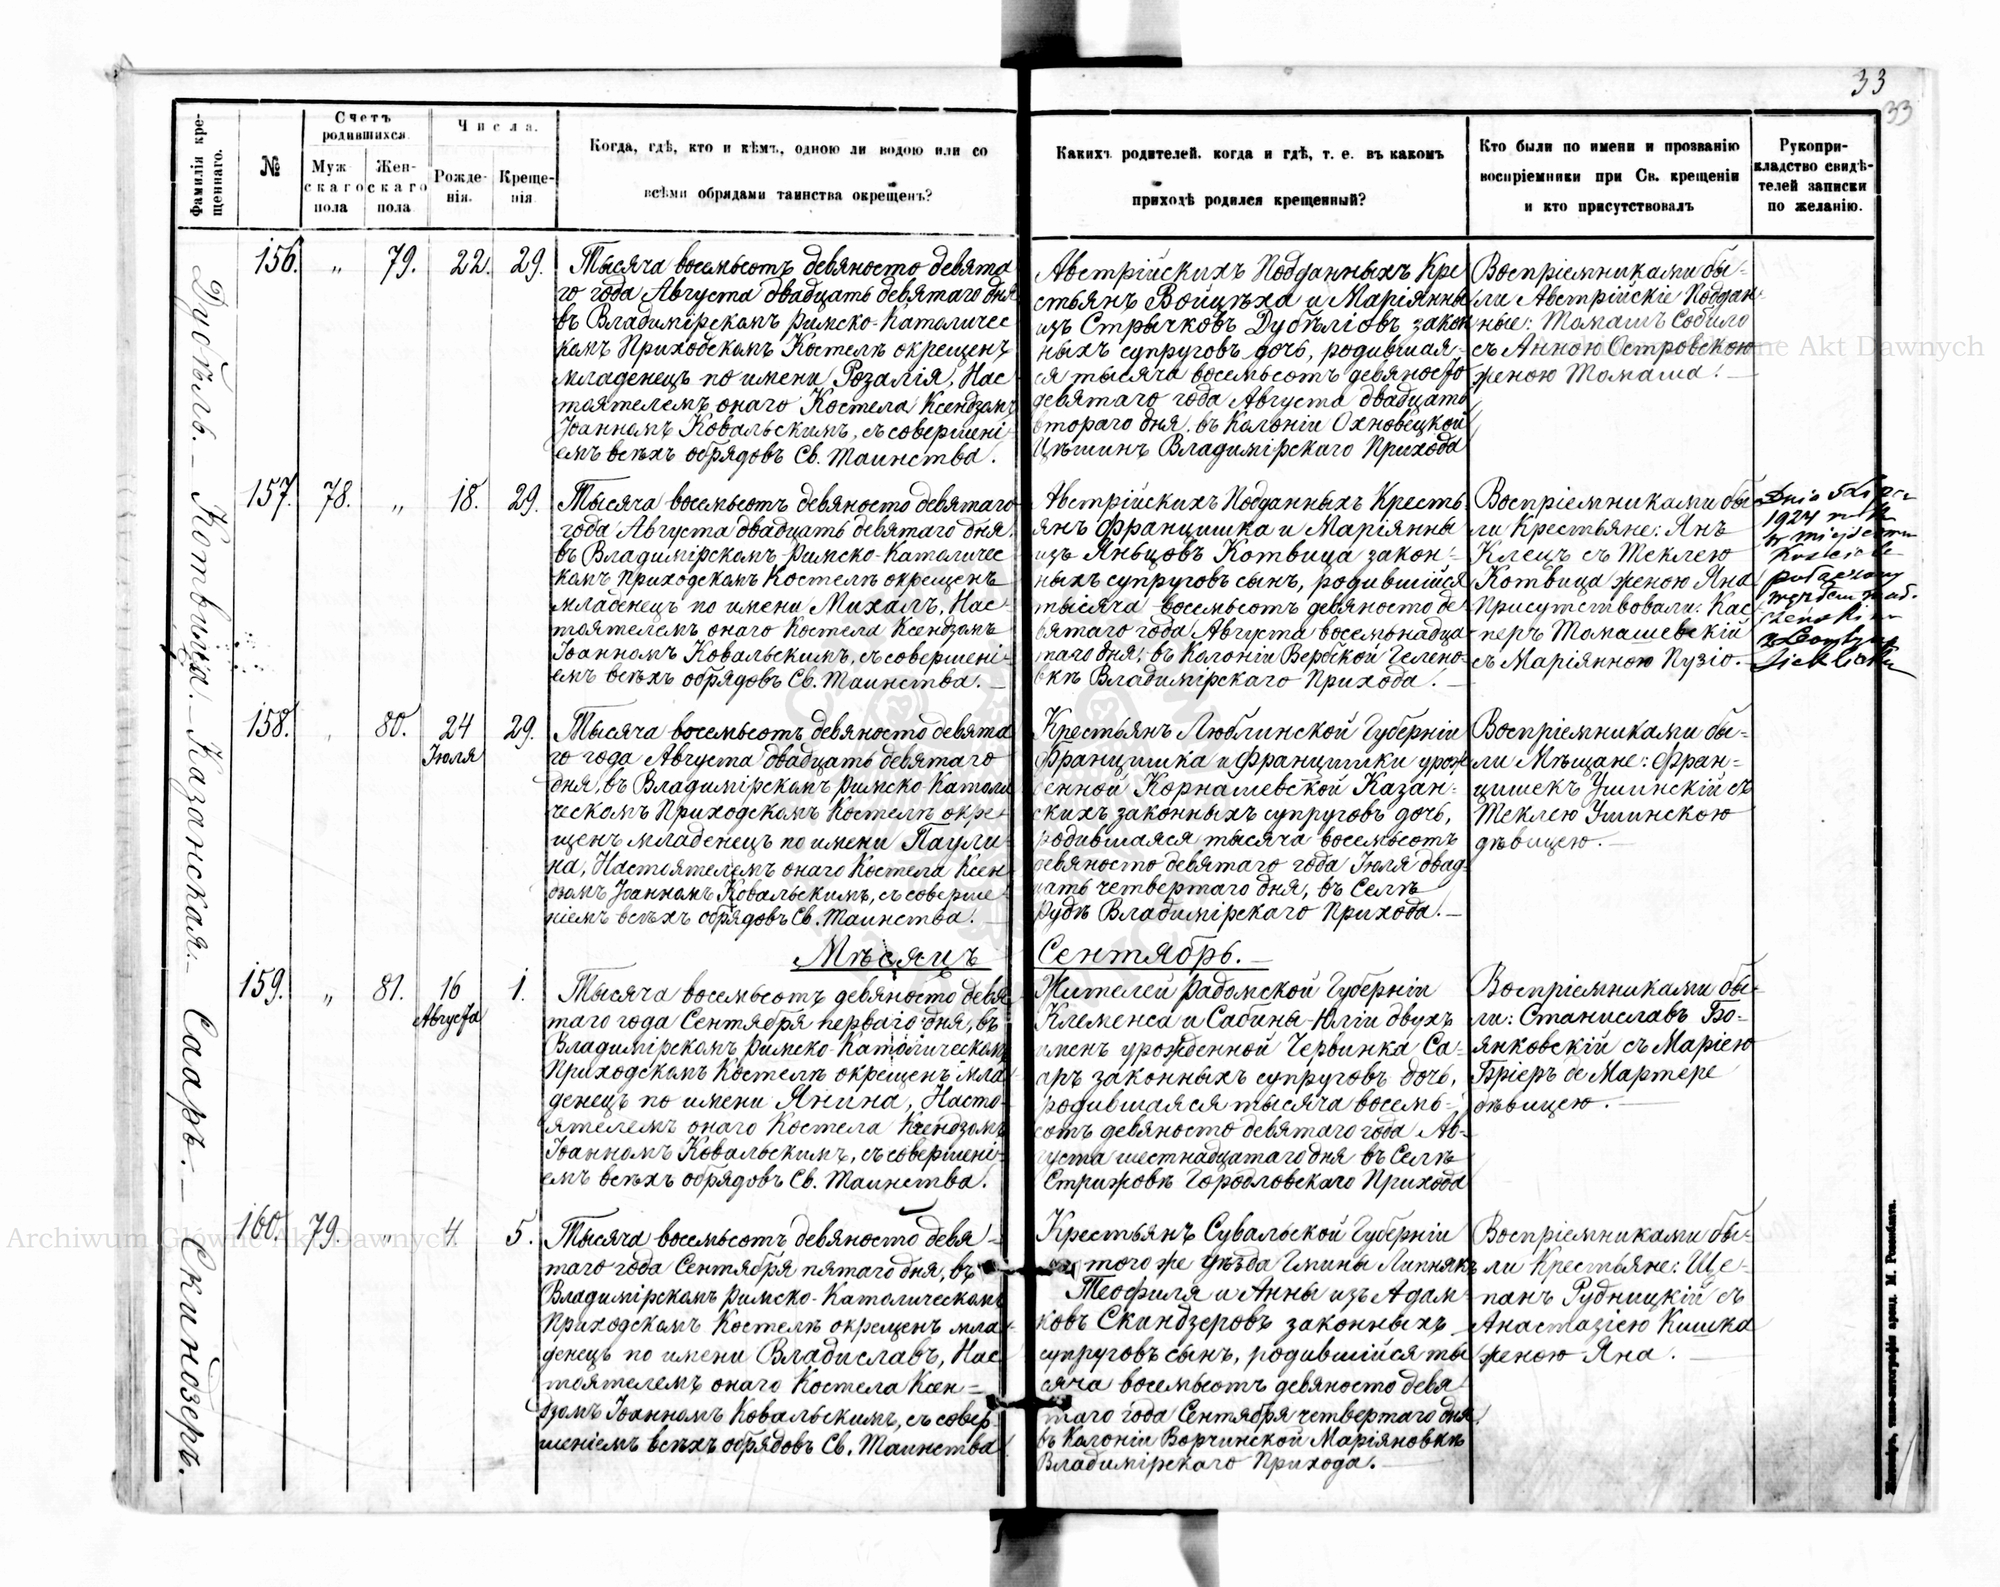 33
33
Фамилія кре-
щеннаго.
№
Счетъ
родившихся.
Муж
скаго
пола
Жен-
скаго
пола.
Числа.
Рожде-
нія.
Креще-
нія
Когда, гдѣ, кто и кѣмъ, одною ли водою или со
всѣми обрядами таинства окрещенъ?
Какихъ родителей, когда и гдѣ, т. е. въ какомъ
приходѣ родился крещенный?
Кто были по имени и прозванію
воспріемники при Св. крещеніи
и кто присутствовалъ
Рукопри-
кладство свидѣ-
телей записки
по желанію.
Дубѣль.
156. „ 79. 22. 29.
Тысяча восемьсотъ девяносто девята
го года Августа двадцать девятаго дня
въ Владимірскомъ Римско-Католичес
комъ Приходскомъ Костелѣ окрещенъ
младенецъ по имени Розалія, Нас
тоятелемъ онаго Костела Ксендзомъ
Іоанномъ Ковальскимъ, съ совершені
емъ всѣхъ обрядовъ Св. Таинства.
Австрійскихъ Подданныхъ Кре
стьянъ Войцѣха и Маріянны
изъ Стрычковъ Дубѣліовъ закон
ныхъ супруговъ дочь, родившая-
ся тысяча восемьсотъ девяносто
девятаго года Августа двадцать
втораго дня, въ Колоніи Охновецкой
Цѣшинъ Владимірскаго Прихода
Воспріемниками бы-
ли Австрійскіе Поддан-
ные: Томашъ Собило
съ Анною Островскою
женою Томаша.
Котвица.
157. 78. „ 18. 29.
Тысяча восемьсотъ девяносто девятаго
года Августа двадцать девятаго дня,
въ Владимірскомъ Римско-Католичес
комъ Приходскомъ Костелѣ окрещенъ
младенецъ по имени Михалъ, Нас-
тоятелемъ онаго Костела Ксендзомъ
Іоанномъ Ковальскимъ, съ совершені-
емъ всѣхъ обрядовъ Св. Таинства.
Австрійскихъ Подданныхъ Кресть
янъ Францишка и Маріянны
изъ Яньцовъ Котвица закон-
ныхъ супруговъ сынъ, родившійся
тысяча восемьсотъ девяносто де
вятаго года Августа восемьнадца
таго дня, въ Колоніи Вербской Гелено-
вкѣ Владимірскаго Прихода.
Воспріемниками бы
ли Крестьяне: Янъ
Клецъ съ Теклею
Котвица женою Яна
Присутствовали: Кас
перъ Томашевскій
съ Маріянною Пузіо.
1924
w miejscowym
Kościele
Казанская.
158. „ 80. 24 29.
Іюля
Тысяча восемьсотъ девяносто девята
го года Августа двадцать девятаго
дня, въ Владимірскомъ Римско-Католи
ческомъ Приходскомъ Костелѣ окре-
щенъ младенецъ по имени Паули-
на, Настоятелемъ онаго Костела Ксен
дзомъ Іоанномъ Ковальскимъ, съ соверше-
ніемъ всѣхъ обрядовъ Св. Таинства.
Крестьянъ Люблинской Губерніи
Францишка и Францишки урож
денной Корнашевской Казан-
скихъ законныхъ супруговъ дочь,
родившаяся тысяча восемьсотъ
девяносто девятаго года Іюля двад-
цать четвертаго дня, въ Селѣ
Рудѣ Владимірскаго Прихода.
Воспріемниками бы-
ли Мѣщане: Фран-
цишекъ Ушинскій съ
Теклею Ушинскою
дѣвицею.
Мѣсяцъ Сентябрь.
Сааръ.
159. „ 81. 16 1.
Августа
Тысяча восемьсотъ девяносто девя
таго года Сентября перваго дня, въ
Владимірскомъ Римско-Католическомъ
Приходскомъ Костелѣ окрещенъ мла
денецъ по имени Янина, Насто-
ятелемъ онаго Костела Ксендзомъ
Іоанномъ Ковальскимъ, съ совершені-
емъ всѣхъ обрядовъ Св. Таинства.
Жителей Радомской Губерніи
Клеменса и Сабины-Юліи двухъ
именъ урожденной Червинка Са-
аръ законныхъ супруговъ дочь,
родившаяся тысяча восемь-
сотъ девяносто девятаго года Ав-
густа шестнадцатаго дня въ Селѣ
Стрижовѣ Городловскаго Прихода
Воспріемниками бы-
ли: Станиславъ Бо-
янковскій съ Маріею
Бріеръ де Мартере
дѣвицею.
Скиндзеръ.
160. 79. „ 4. 5.
Тысяча восемьсотъ девяносто девя-
таго года Сентября пятаго дня, въ
Владимірскомъ Римско-Католическомъ
Приходскомъ Костелѣ окрещенъ мла-
денецъ по имени Владиславъ, Нас
тоятелемъ онаго Костела Ксен-
дзомъ Іоанномъ Ковальскимъ, съ совер-
шеніемъ всѣхъ обрядовъ Св. Таинства.
Крестьянъ Сувальской Губерніи
тогоже уѣзда Гмины Липнякъ
Теофиля и Анны изъ Адам
ковъ Скиндзеровъ законныхъ
супруговъ сынъ, родившійся ты
сяча восемьсотъ девяносто девя
таго года Сентября четвертаго дня,
въ Колоніи Ворчинской Маріяновкѣ
Владимірскаго Прихода.
Воспріемниками бы-
ли Крестьяне: Ще-
панъ Рудницкій съ
Анастазіею Кишка
женою Яна.
Житоміръ, типо-литографія аренд. М. Розенблата.
Archiwum Główne Akt Dawnych